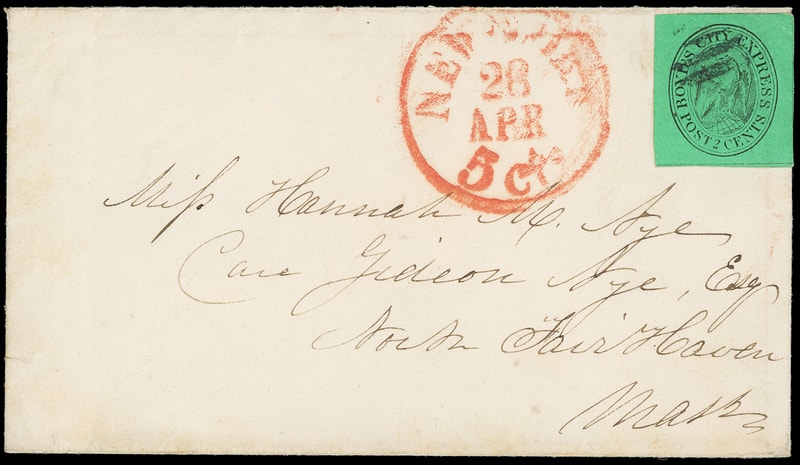 BOYD'S CITY EXPRESS
POST 2 CENTS
NEW YORK
28
APR
5 cts
Miss Hannah M. Nye
Care Gideon Nye, Esq
North Fair Haven
Mass